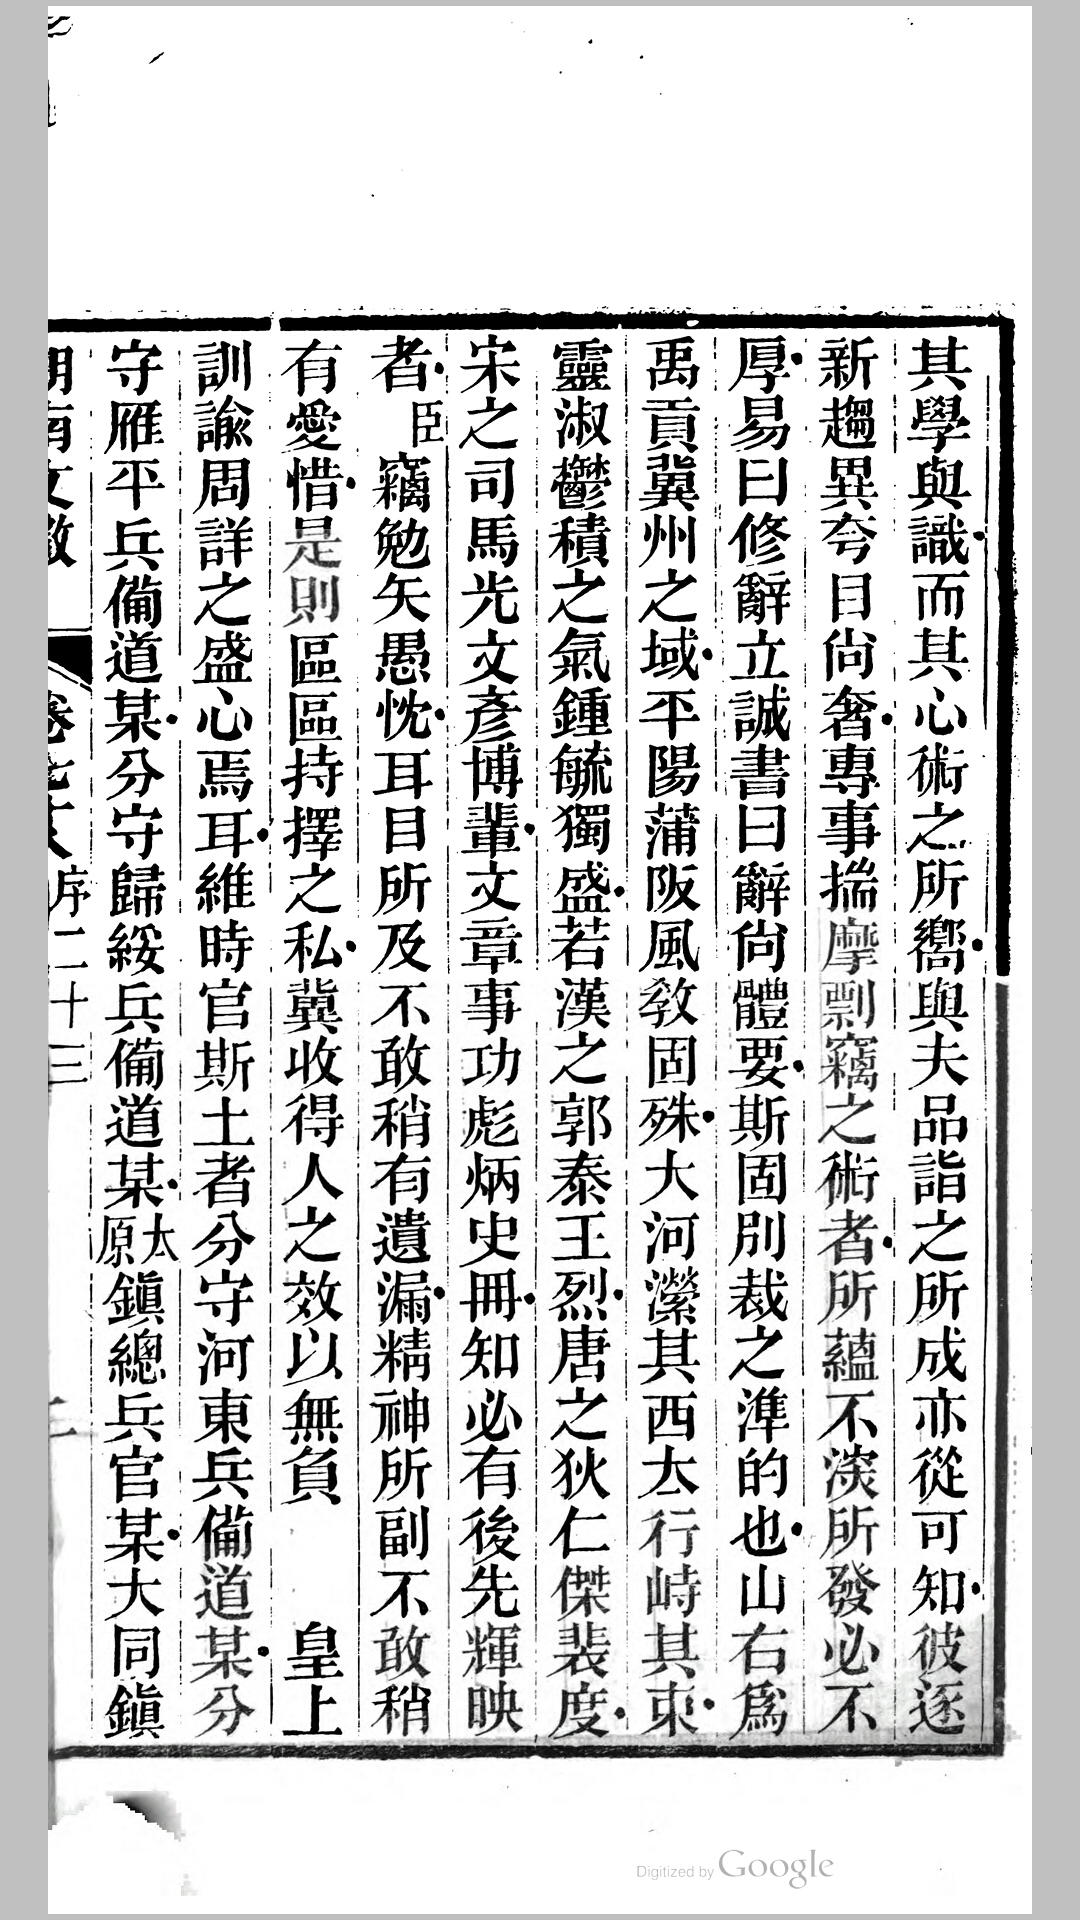 其學與識而其心術之所嚮與夫品詣之所成亦從可知彼逐
新趨異夸目尙奢專事揣摩剽竊之術者所蘊不深所發必不
厚易曰修辭立誠書曰辭尙體要斯固別裁之準的也山右爲
禹貢冀州之域平陽蒲阪風敎固殊大河瀠其西太行峙其東
靈淑鬱積之氣鍾毓獨盛若漢之郭泰王烈唐之狄仁傑裴度
宋之司馬光文彥博輩文章事功彪炳史冊知必有後先輝映
者臣竊勉矢愚忱耳目所及不敢稍有遺漏精神所副不敢稍
有愛惜是則區區持擇之私冀收得人之效以無負皇上
訓諭周詳之盛心焉耳維時官斯土者分守河東兵備道某分
守雁平兵備道某分守歸綏兵備道某太原鎭總兵官某大同鎭
湖南文徵 序二十三
Digitized by Google